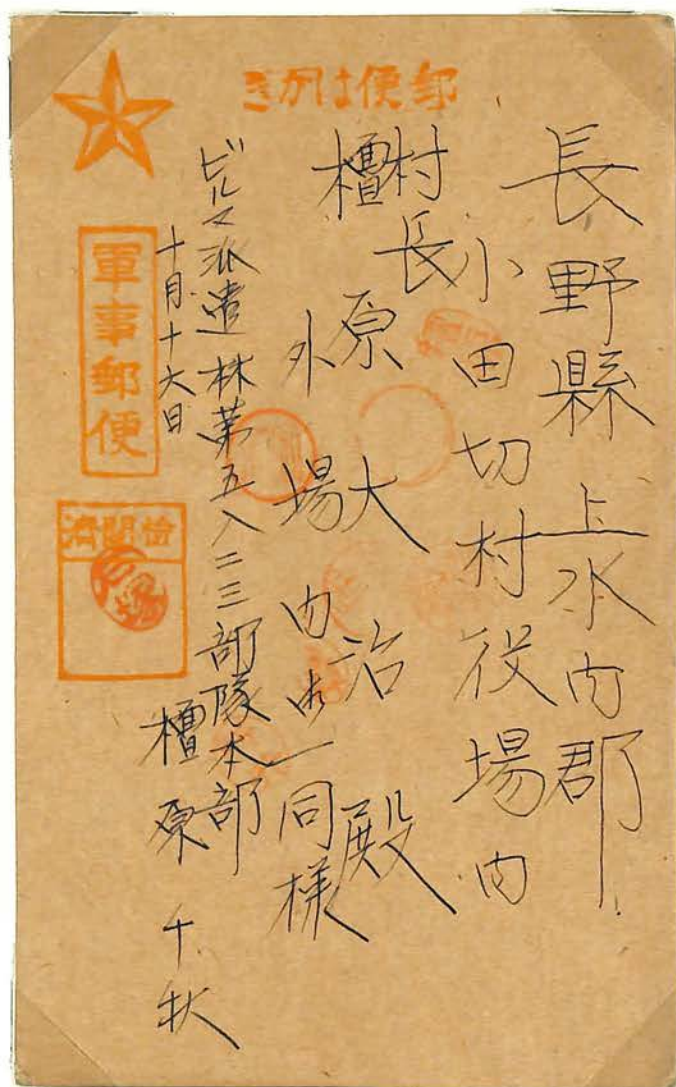 郵便はがき
長野縣上水内郡
小田切村役場内
村長
檀原大治殿
外場内御一同様
ビルマ派遣林第五八二三部隊本部
十月十六日
檀原千秋
軍事郵便
檢閲濟